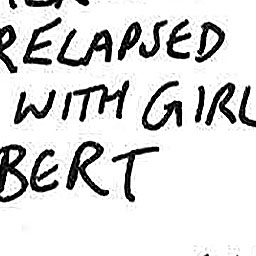 RELAPSED
WITH GIRL
BERT